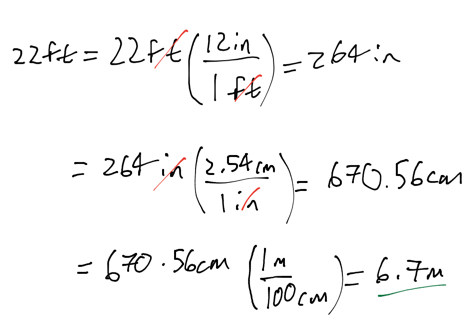 22ft = 22ft (12in / 1ft) = 264in
= 264in (2.54cm / 1in) = 670.56cm
= 670.56cm (1m / 100cm) = 6.7m